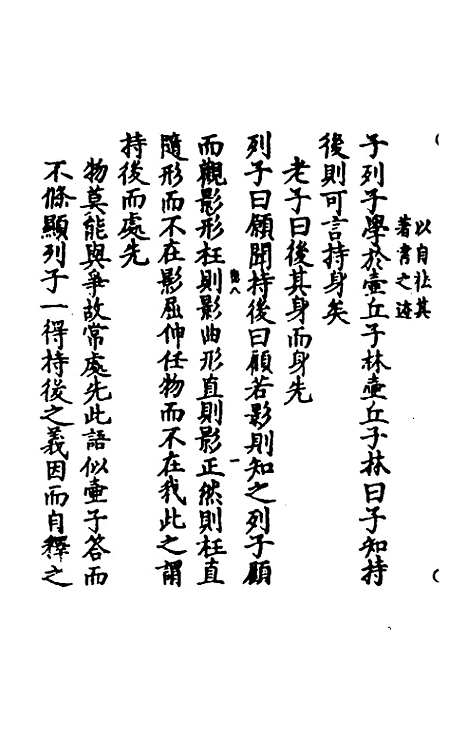 以自壮其
著書之迹
子列子學於壺丘子林壺丘子林曰子知持
後則可言持身矣
老子曰後其身而身先
列子曰願聞持後曰顧若影則知之列子顧
而觀影形枉則影曲形直則影正然則枉直
隨形而不在影屈伸任物而不在我此之謂
持後而處先
物莫能與爭故常處先此語似壺子答而
不條顯列子一得持後之義因而自釋之